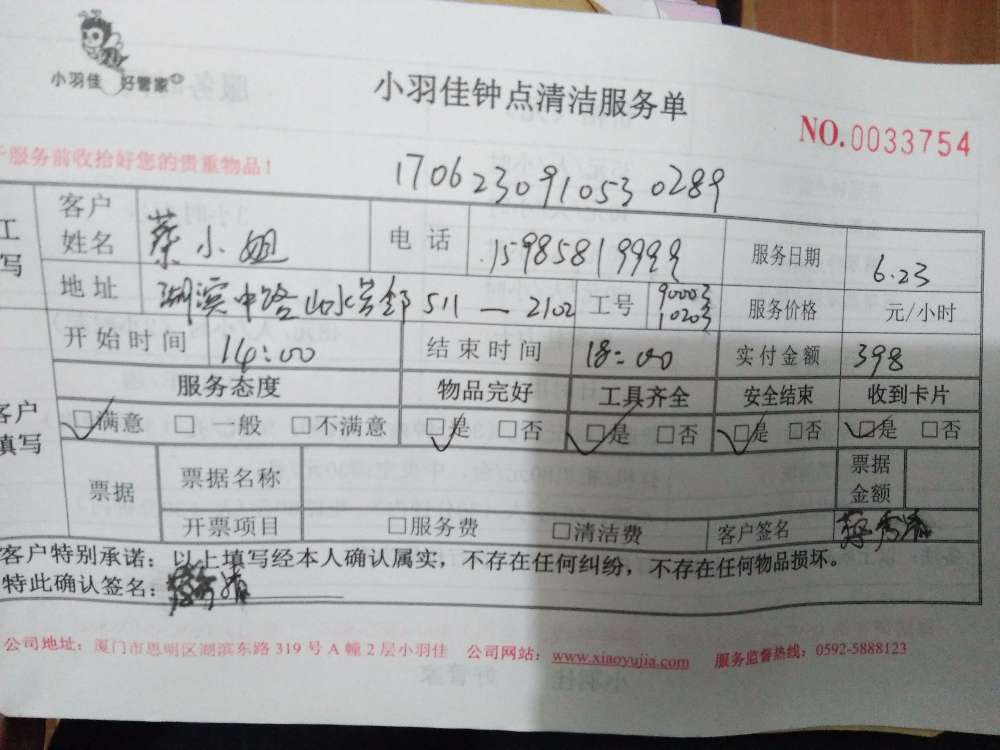 小羽佳 好管家
小羽佳钟点清洁服务单
NO.0033754
服务前收拾好您的贵重物品！
170623091053 0289
工 客户姓名 蔡小姐 电话 15985819999 服务日期 6.23
写 地址 湖滨中路山水芳邻511—2102 工号 90003 10203 服务价格 元/小时
开始时间 14:00 结束时间 18:00 实付金额 398
服务态度 物品完好 工具齐全 安全结束 收到卡片
客户填写 ☑满意 □一般 □不满意 ☑是 □否 ☑是 □否 ☑是 □否 ☑是 □否
票据 票据名称 票据金额
开票项目 □服务费 □清洁费 客户签名
客户特别承诺：以上填写经本人确认属实，不存在任何纠纷，不存在任何物品损坏。
特此确认签名：
公司地址：厦门市思明区湖滨东路319号A幢2层小羽佳 公司网站：www.xiaoyujia.com 服务监督热线：0592-5888123